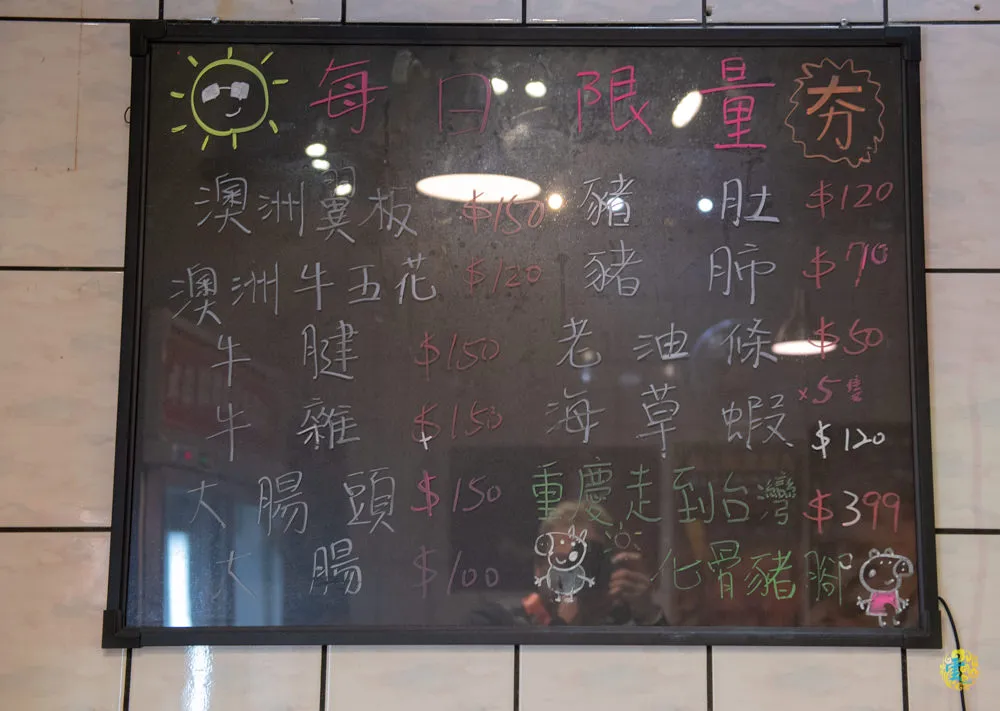 每日限量 夯
澳洲翼板 $150 豬肚 $120
澳洲牛五花 $120 豬肺 $70
牛腱 $150 老油條 $50
牛雜 $150 海草蝦 ×5隻 $120
大腸頭 $150 重慶走到台灣 $399
大腸 $100 化骨豬腳